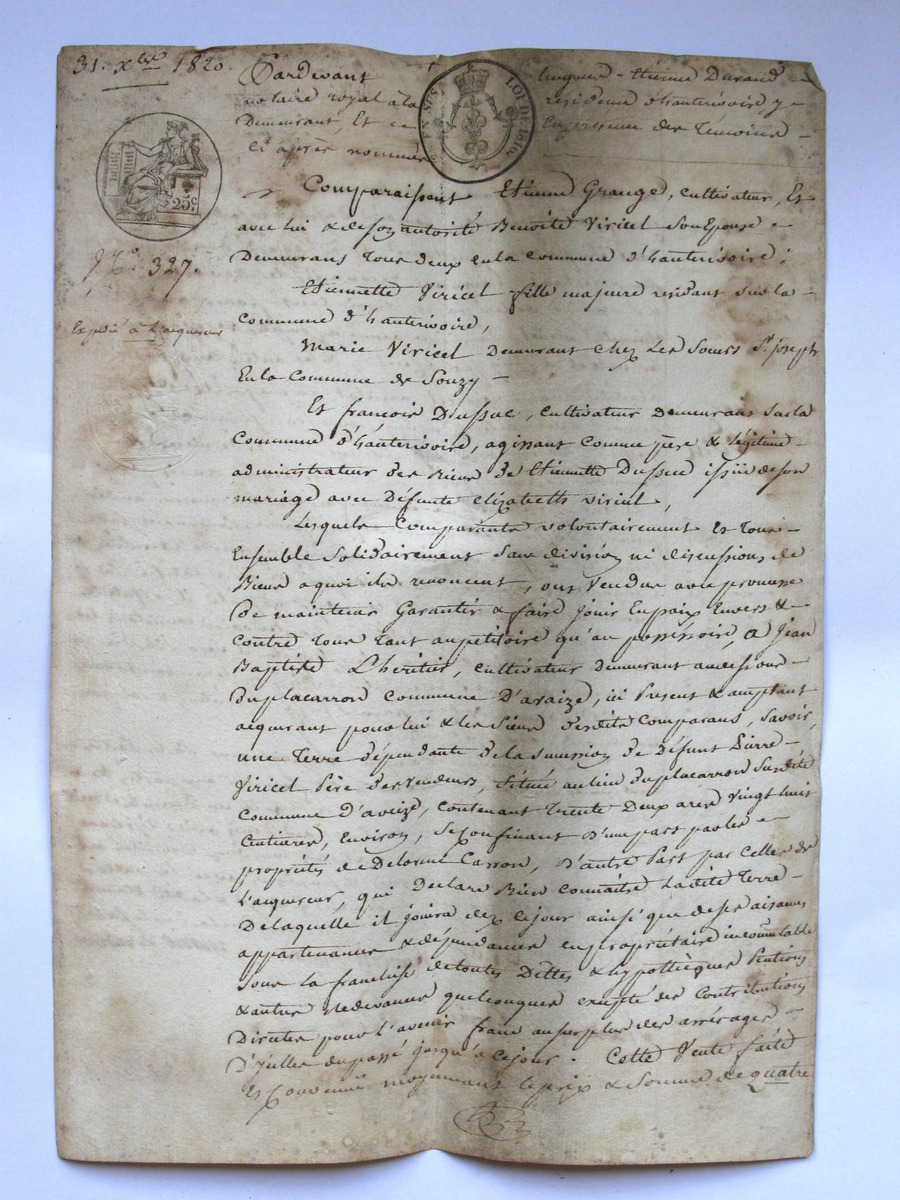 31. xbre 1820.
Pardevant Etienne Durand
notaire royal à la résidence d'hauterivoire, y
Demeurant, Et en la présence des Témoins
Ci après nommés
EN SUS LOI DE 1816.
25c
No. 327.
Expédié à L'acquereur
Comparaissent Etienne Grange, cultivateur, Et
avec lui & de son autorité Benoite Viricel Son Epouse
Demeurans Tous deux en la commune d'hauterivoire;
Etiennette Viricel fille majeure residant sur la
Commune d'hauterivoire,
Marie Viricel Demeurant chez Les Soeurs St. joseph
En la Commune de Souzy
Et francois Dussuc, cultivateur Demeurans sur la
Commune d'hauterivoire, agissant comme père & légitime
administrateur des Biens de Etiennette Dussuc issüe de son
mariage avec Défunte elizabeth viricel,
Lesquels Comparants volontairement Et Tous
Ensemble Solidairement Sans division ni discussion de
Biens a quoi ils renoncent, ont Vendus avec promesse
De maintenir Garantir & faire jouir En paix Envers &
Contre Tous Tant au pétitoire qu'au possessoire, a Jean
Baptiste L'heritier, cultivateur demeurant
Du placarron Commune D'avaize, ici Present & acceptant
acquerant pour lui & les Siens desdits Comparans, Savoir,
une Terre dépendante de la Sucession de Défunt Pierre
Viricel Père des Vendeurs, Située au lieu Du placarron Susdite
Commune d'aveize, contenant Trente Deux ares Vingt huit
Centiares, Environ, Se Confinant D'une part par les
propriétés de Delorme Carron, D'autre Part par Celles de
l'acquereur, qui Declare Bien Connaître Ladite Terre
De laquelle il jouira dez Ce jour ainsi que de ses aisances
appartenances & dépendances en propriétaire incommutable
sous la franchise de toutes Dettes & hypothèques Pentions
& autres Redevances quelconques excepté des Contributions
Directes pour l'avenir franc au surplus des arrérages
D'ycelles du passé jusqu'à ce jour. Cette Vente faite
Et Convenüe moyennant le prix & Somme de quatre